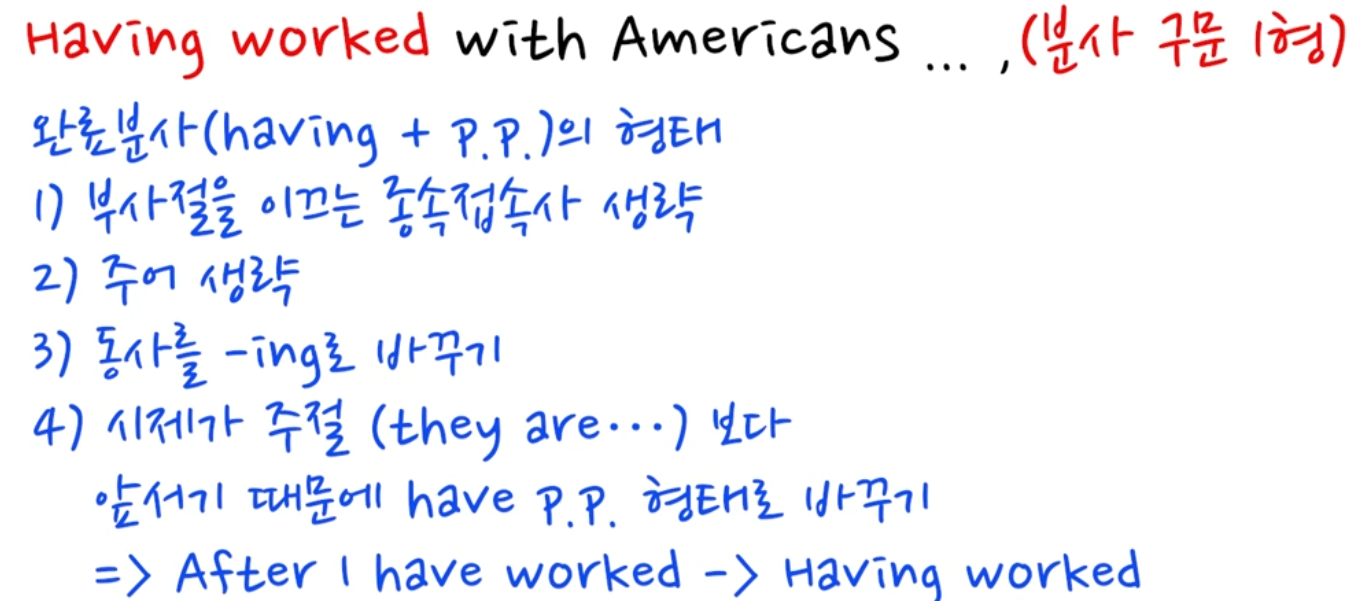 Having worked with Americans ... ,(분사 구문 1형)
완료분사(having + P.P.)의 형태
1) 부사절을 이끄는 종속접속사 생략
2) 주어 생략
3) 동사를 -ing로 바꾸기
4) 시제가 주절 (they are···) 보다
앞서기 때문에 have P.P. 형태로 바꾸기
=> After I have worked -> Having worked